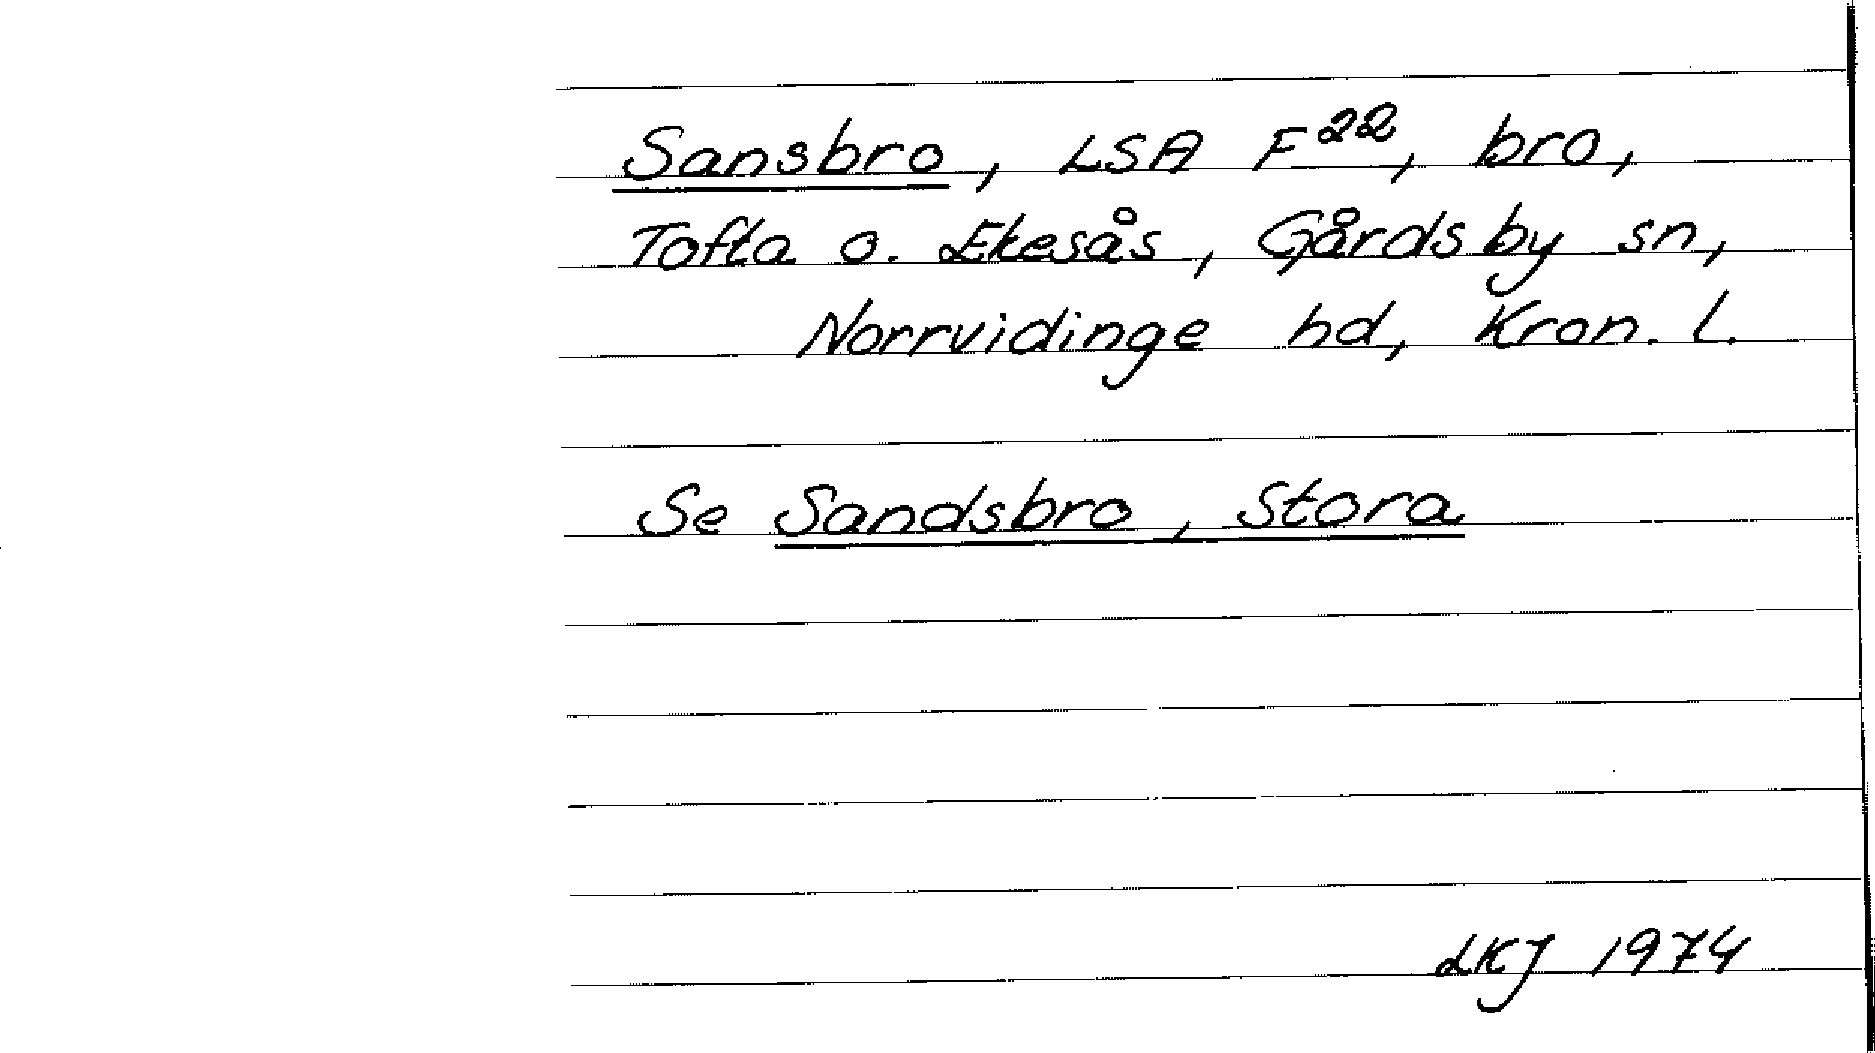 Sansbro, LSA F²², bro,
Tofta o. Ekesås, Gårdsby sn,
Norrvidinge hd, Kron. l.
Se Sandsbro, Stora
LKJ 1974